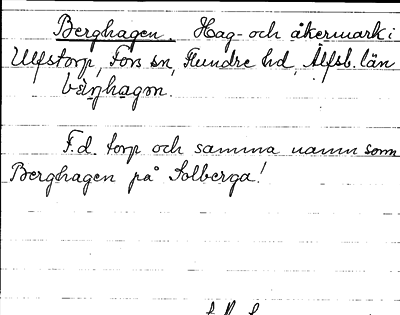 Berghagen. Hag- och åkermark i
Ulfstorp, Fors sn, Flundre hd, Älfsb. län
bärjhagen.
F.d. torp och samma namn som
Berghagen på Solberga!